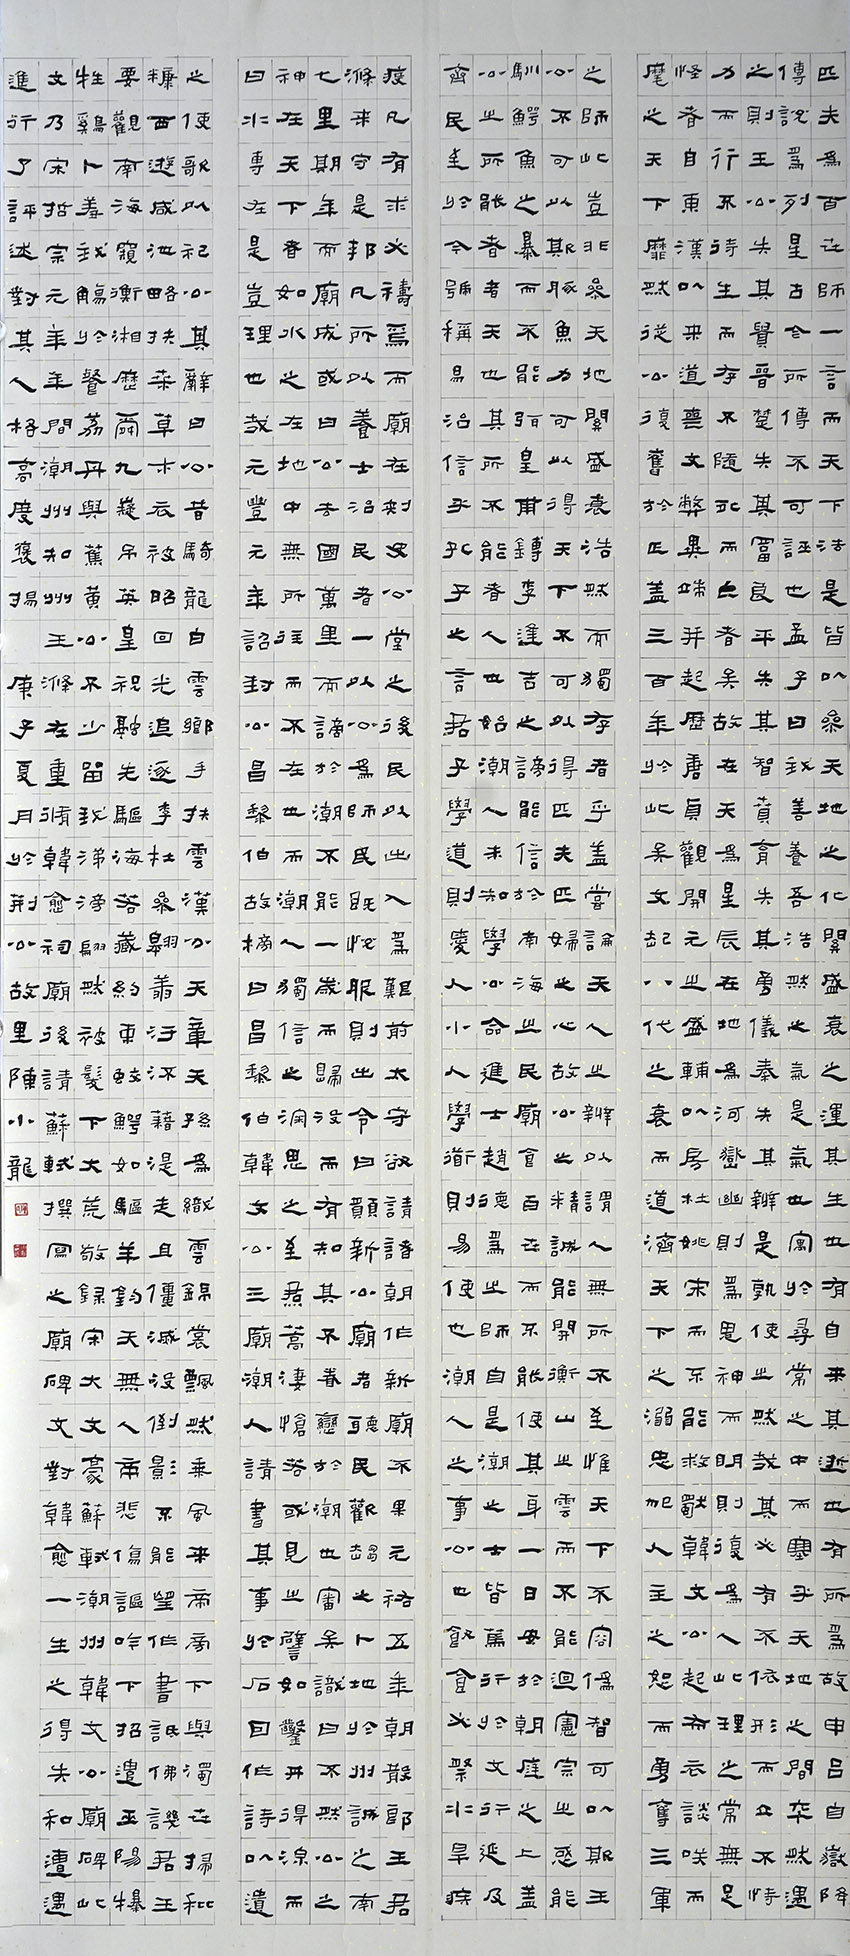 匹夫爲百世師一言而天下法是皆以參天地之化關盛衰之運其生也有自來其逝也有所爲故申呂自嶽降
傳說爲列星古今所傳不可誣也孟子曰我善養吾浩然之氣是氣也寓於尋常之中而塞乎天地之間卒然遇
之則王公失其貴晉楚失其富良平失其智賁育失其勇儀秦失其辯是孰使之然哉其必有不依形而立不恃
力而行不待生而存不隨死而亡者矣故在天爲星辰在地爲河嶽幽則爲鬼神而明則復爲人此理之常無足
怪者自東漢以來道喪文弊異端并起歷唐貞觀開元之盛輔以房杜姚宋而不能救獨韓文公起布衣談笑而
麾之天下靡然從公復舊於正蓋三百年於此矣文起八代之衰而道濟天下之溺忠犯人主之怒而勇奪三軍
之帥此豈非參天地關盛衰浩然而獨存者乎蓋嘗論天人之辨以謂人無所不至惟天下不容僞智可以欺王
公不可以欺豚魚力可以得天下不可以得匹夫匹婦之心故公之精誠能開衡山之雲而不能迴憲宗之惑能
馴鱷魚之暴而不能弭皇甫鎛李逢吉之謗能信於南海之民廟食百世而不能使其身一日安於朝廷之上蓋
公之所能者天也其所不能者人也始潮人未知學公命進士趙德爲之師自是潮之士皆篤行於文行延及
齊民至於今號稱易治信乎孔子之言君子學道則愛人小人學道則易使也潮人之事公也飲食必祭水旱疾
疫凡有求必禱焉而廟在刺史公堂之後民以出入爲艱前太守欲請諸朝作新廟不果元祐五年朝散郎王君
滌來守是邦凡所以養士治民者一以公爲師民既悅服則出令曰願新公廟者聽民歡趨之卜地於州城之南
七里期年而廟成或曰公去國萬里而謫於潮不能一歲而歸沒而有知其不眷戀於潮也審矣識曰不然公之
神在天下者如水之在地中無所往而不在也而潮人獨信之深思之至焄蒿凄愴若或見之譬如鑿井得泉而
曰水專在是豈理也哉元豐元年詔封公昌黎伯故榜曰昌黎伯韓文公三廟潮人請書其事於石因作詩以遺
之使歌以祀公其辭曰公昔騎龍白雲鄉手抉雲漢分天章天孫爲織雲錦裳飄然乘風來帝旁下與濁世掃秕
糠西遊咸池略扶桑草木衣被昭回光追逐李杜參翱翔汗流籍湜走且僵滅沒倒影不能望作書詆佛譏君王
要觀南海窺衡湘歷舜九嶷弔英皇祝融先驅海若藏約束蛟鱷如驅羊鈞天無人帝悲傷謳吟下招遣巫陽犦
牲雞卜羞我觴於粲荔丹與蕉黃公不少留我涕滂翩然被髮下大荒敬録宋大文豪蘇軾潮州韓文公廟碑此
文乃宋哲宗元年年間潮州知州王滌在重脩韓愈祠廟後請蘇軾撰寫之廟碑文對韓愈一生之得失和遭遇
進行了評述對其人格高度褒揚 庚子夏月於荊公故里陳小龍